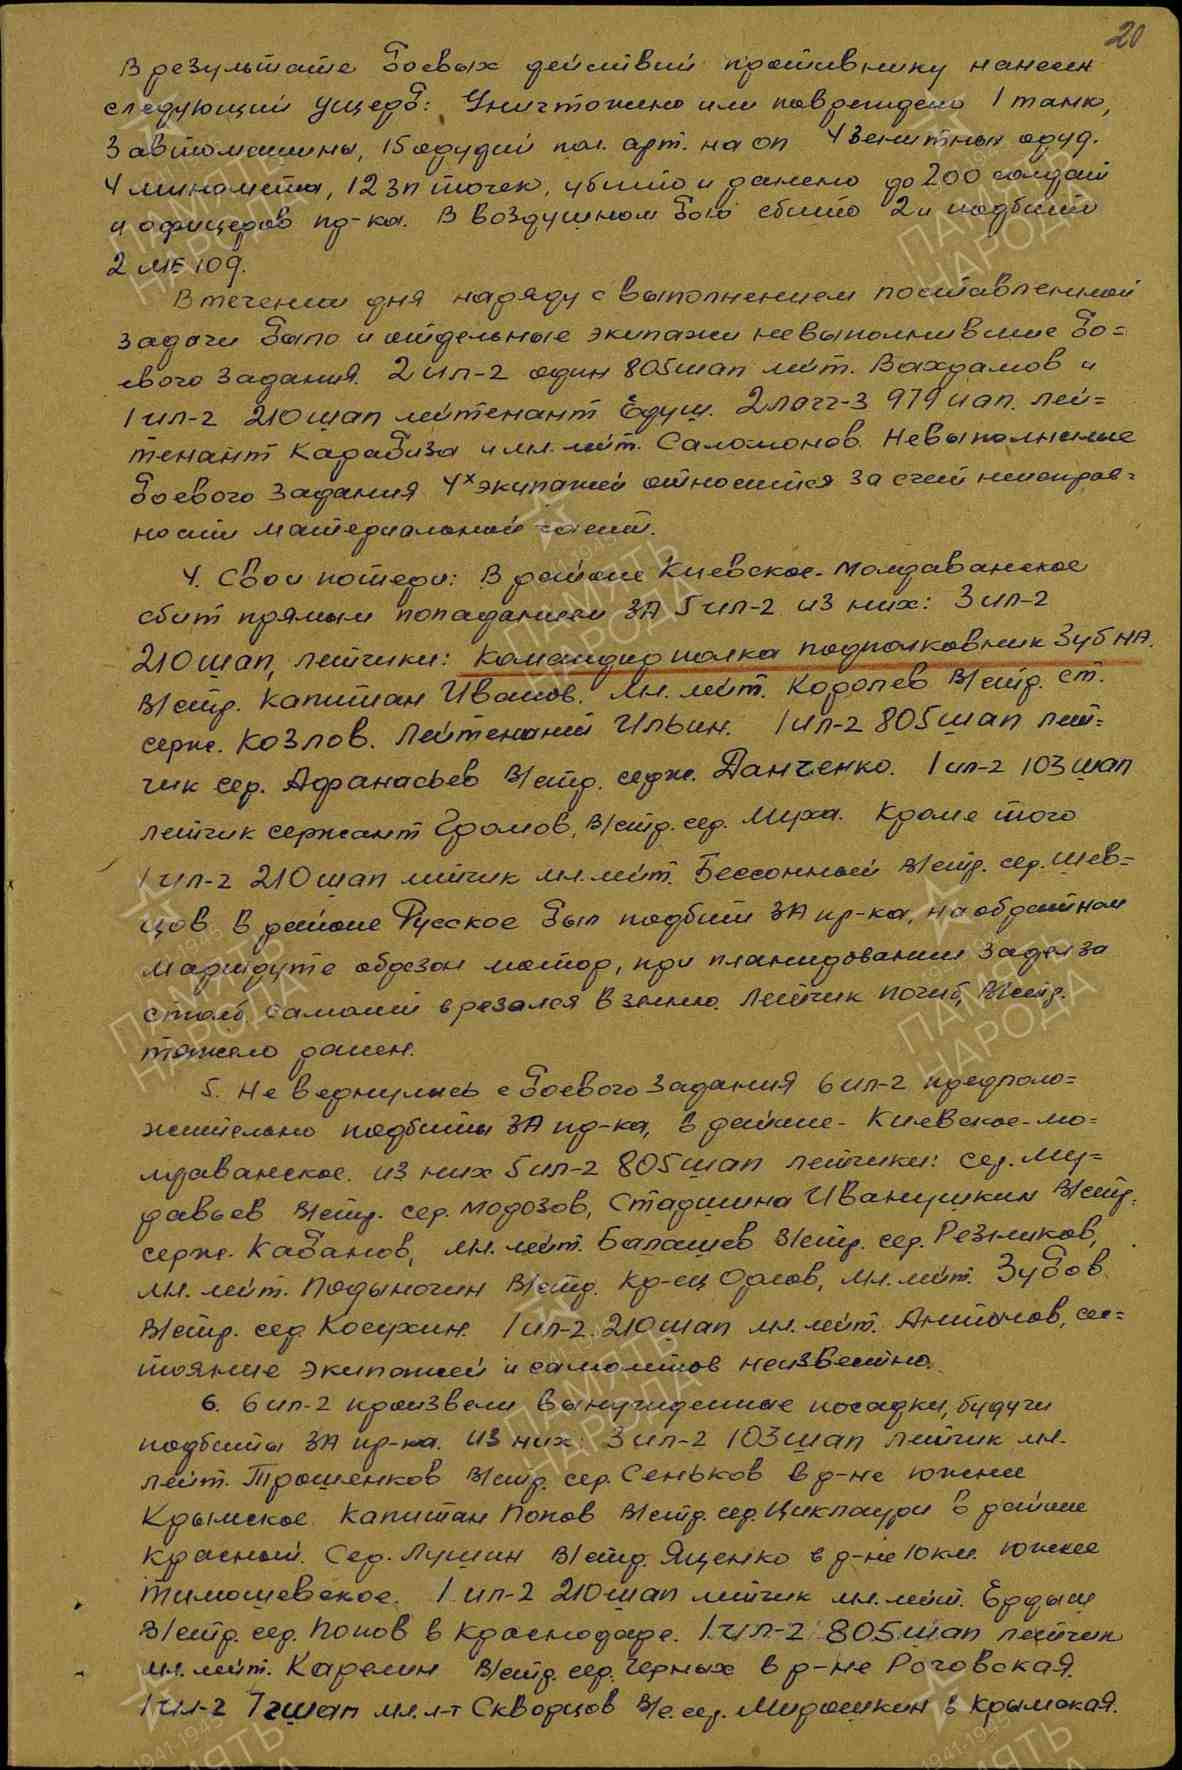 20
В результате боевых действий противнику нанесен
следующий ущерб: Уничтожено или повреждено 1 танк,
3 автомашины, 15 орудий пол. арт. на оп 4 зенитных оруд.
4 миномета, 12 зп точек, убито и ранено до 200 солдат
и офицеров пр-ка. В воздушном бою сбито 2 и подбито
2 МЕ 109.
В течении дня наряду с выполнением поставленной
задачи было и отдельные экипажи невыполнившие бо=
евого задания. 2 ил-2 один 805 шап лейт. Вахрамов и
1 ил-2 210 шап лейтенант Ердуш. 2 лагг-3 979 иап. лей=
тенант Карабиза и мл. лейт. Саломонов. Невыполнение
боевого задания 4х экипажей относится за счет неисправ=
ности материальной части.
4. Свои потери: В районе Киевское-Молдаванское
сбит прямым попаданием ЗА 5 ил-2 из них: 3 ил-2
210 шап, летчики: командир полка подполковник Зуб НА.
В/стр. капитан Иванов. мл. лейт. Королев В/стр. ст.
серж. Козлов. Лейтенант Ильин. 1 ил-2 805 шап лет=
чик сер. Афанасьев В/стр. серж. Панченко. 1 ил-2 103 шап
летчик сержант Громов, В/стр. сер. Муха. Кроме того
1 ил-2 210 шап летчик мл. лейт. Бессонный В/стр. сер. Шев=
цов в районе Русское был подбит ЗА пр-ка, на обратном
маршруте обрезал мотор, при планировании задел за
столб, самолет врезался в землю. Летчик погиб, В/стр.
тяжело ранен.
5. Не вернулись с боевого задания 6 ил-2 предполо=
жительно подбиты ЗА пр-ка, в районе - Киевское-мо=
лдаванское. из них 5 ил-2 805 шап летчики: сер. Му=
равьев В/стр. сер. Морозов, Старшина Иванушкин В/стр.
серж. Кабанов, мл. лейт. Балашев В/стр. сер. Резников,
мл. лейт. Подыночин В/стр. кр-ец Орлов, мл. лейт. Зубов
В/стр. сер. Косухин. 1 ил-2 210 шап мл. лейт. Антонов, сос=
тояние экипажей и самолетов неизвестно.
6. 6 ил-2 произвели вынужденные посадки, будучи
подбиты ЗА пр-ка. из них: 3 ил-2 103 шап летчик мл.
лейт. Трошенков В/стр. сер. Сеньков в р-не южнее
Крымское. Капитан Попов В/стр. сер. Циклаури в районе
Красный. Сер. Лушин В/стр. Ященко в р-не 10 км. южнее
Тимошевское. 1 ил-2 210 шап летчик мл. лейт. Ердыш
В/стр. сер. Попов в Краснодаре. 1 ил-2 805 шап летчик
мл. лейт. Карелин В/стр. сер. Черных в р-не Роговская.
1 ил-2 7 гшап мл. л-т Скворцов В/с. сер. Мирошкин в Крымская.